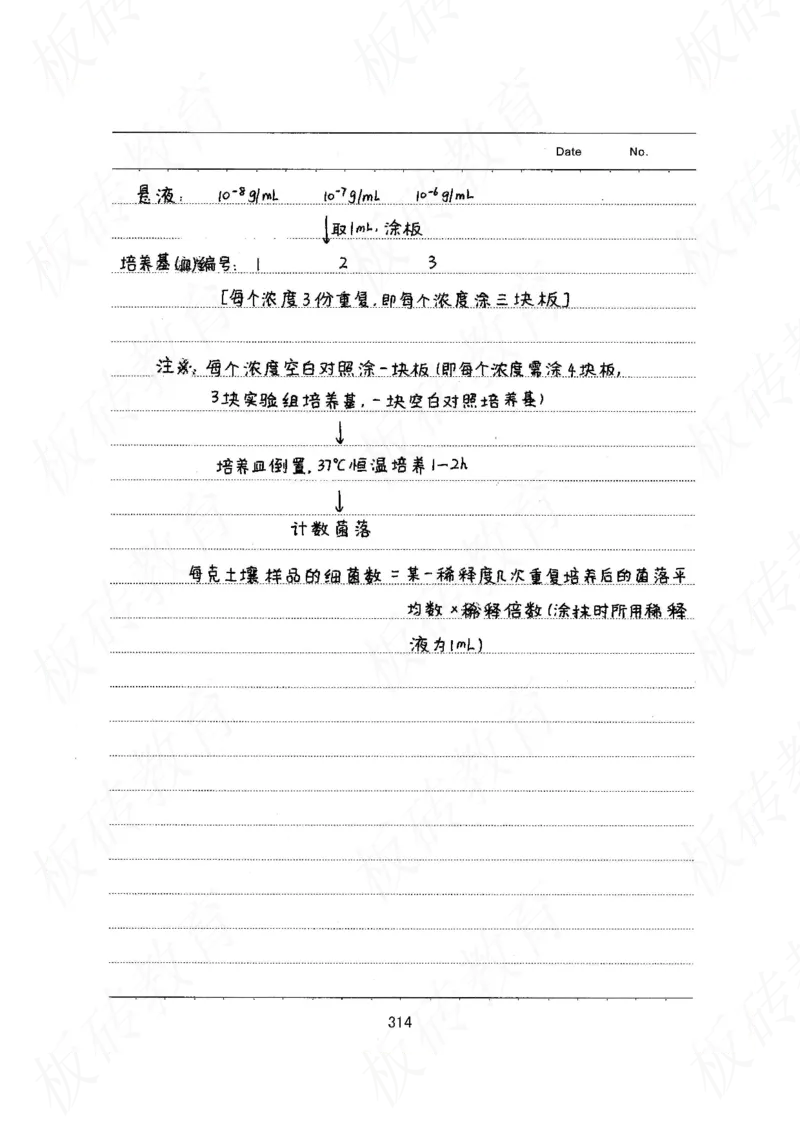 Date No.
悬液: 10⁻⁸g/mL 10⁻⁷g/mL 10⁻⁶g/mL
↓取1mL,涂板
培养基(皿)编号: 1 2 3
[每个浓度3份重复,即每个浓度涂三块板]
注※: 每个浓度空白对照涂一块板(即每个浓度需涂4块板,
3块实验组培养基,一块空白对照培养基)
↓
培养皿倒置,37℃恒温培养1-2h
↓
计数菌落
每克土壤样品的细菌数=某一稀释度几次重复培养后的菌落平
均数×稀释倍数(涂抹时所用稀释
液为1mL)
314
板砖教育